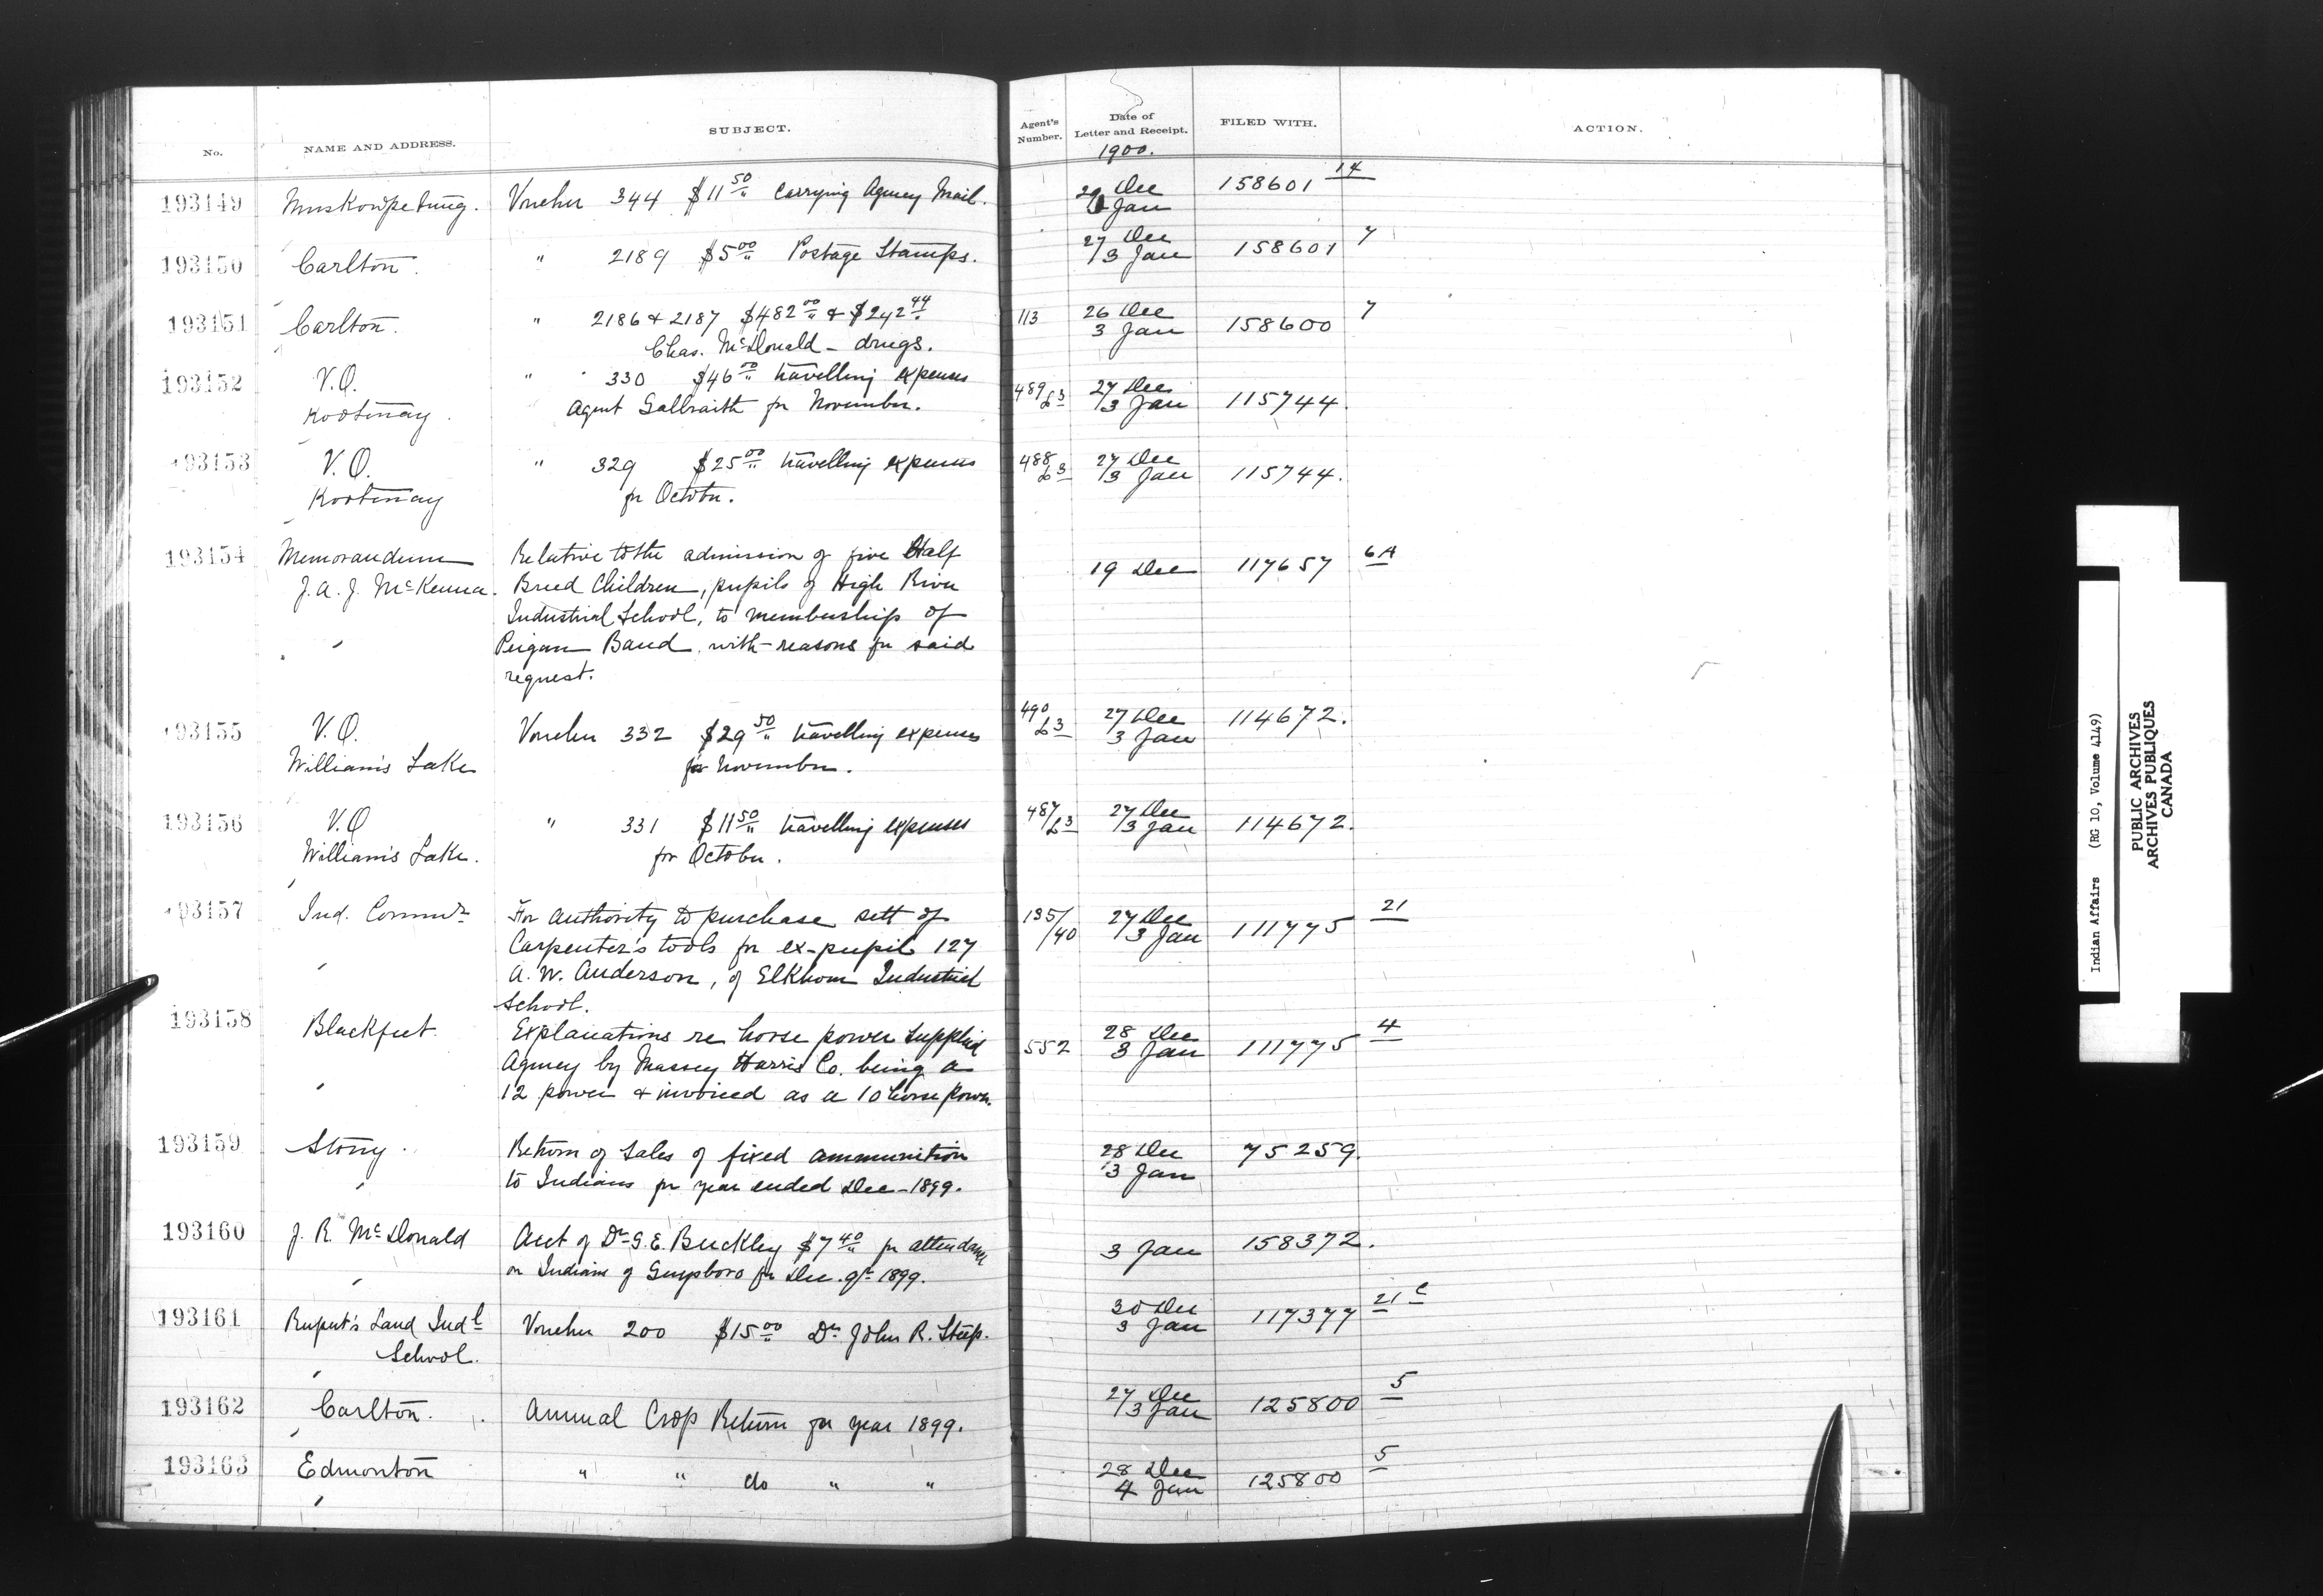 No.
NAME AND ADDRESS.
SUBJECT.
Agent's Number.
Date of Letter and Receipt.
1900.
FILED WITH.
ACTION.
193149 Muskowpetung. Voucher 344 $11 50/" Carrying Agency Mail. 29 Dec 158601 14
3 Jan
193150 Carlton. " 2189 $5 00/" Postage Stamps. 27 Dec 158601 7
/3 Jan
193151 Carlton. " 2186 & 2187 $482 00/" & $242 44/" 113 26 Dec 158600 7
Chas. McDonald - drugs. 3 Jan
193152 V.O. " 330 $46 00/" travelling expenses 489/L3 27 Dec 115744.
Kootenay. Agent Galbraith for November. /3 Jan
193153 V.O. " 329 $25 00/" travelling expenses 488 L3 27 Dec 115744.
Kootenay for October. /3 Jan
193154 Memorandum Relative to the admission of five Half 19 Dec 117657 6A
J. A. J. McKenna. Breed Children, pupils of High River
Industrial School, to membership of
Peigan Band, with reasons for said
request.
193155 V.O. Voucher 332 $29 50/" travelling expenses 490 L3 27 Dec 114672.
William's Lake for November. 3 Jan
193156 V.O " 331 $11 50/" travelling expenses 487/L3 27 Dec 114672.
William's Lake. for October. /3 Jan
193157 Ind. Commr For authority to purchase sett of 135/40 27 Dec 111775 21
Carpenter's tools for ex-pupil 127 /3 Jan
A. W. Anderson, of Elkhorn Industrial
School.
193158 Blackfeet. Explanations re horse power supplied 552 28 Dec 111775 4
Agency by Massey Harris Co. being a 3 Jan
12 power & invoiced as a 10 horse power.
193159 Stony. Return of Sales of fixed ammunition 28 Dec 75259.
to Indians for year ended Dec - 1899. 3 Jan
193160 J. R. McDonald Acct of Dr G. E. Buckley $7 40/" for attendance 3 Jan 158372.
on Indians of Guysboro for Dec. qr 1899.
193161 Rupert's Land Indl Voucher 200 $15 00/" Dr John R. Steep. 30 Dec 117377 21 C
School. 3 Jan
193162 Carlton. Annual Crop Return for year 1899. 27 Dec 125800 5
/3 Jan
193163 Edmonton " " do " " 28 Dec 125800 5
4 Jan
Indian Affairs (RG 10, Volume 4149)
PUBLIC ARCHIVES
ARCHIVES PUBLIQUES
CANADA